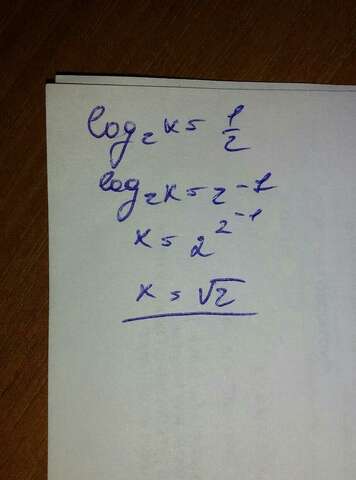 log₂x = 1/2
log₂x = 2⁻¹
x = 2^2⁻¹
x = √2